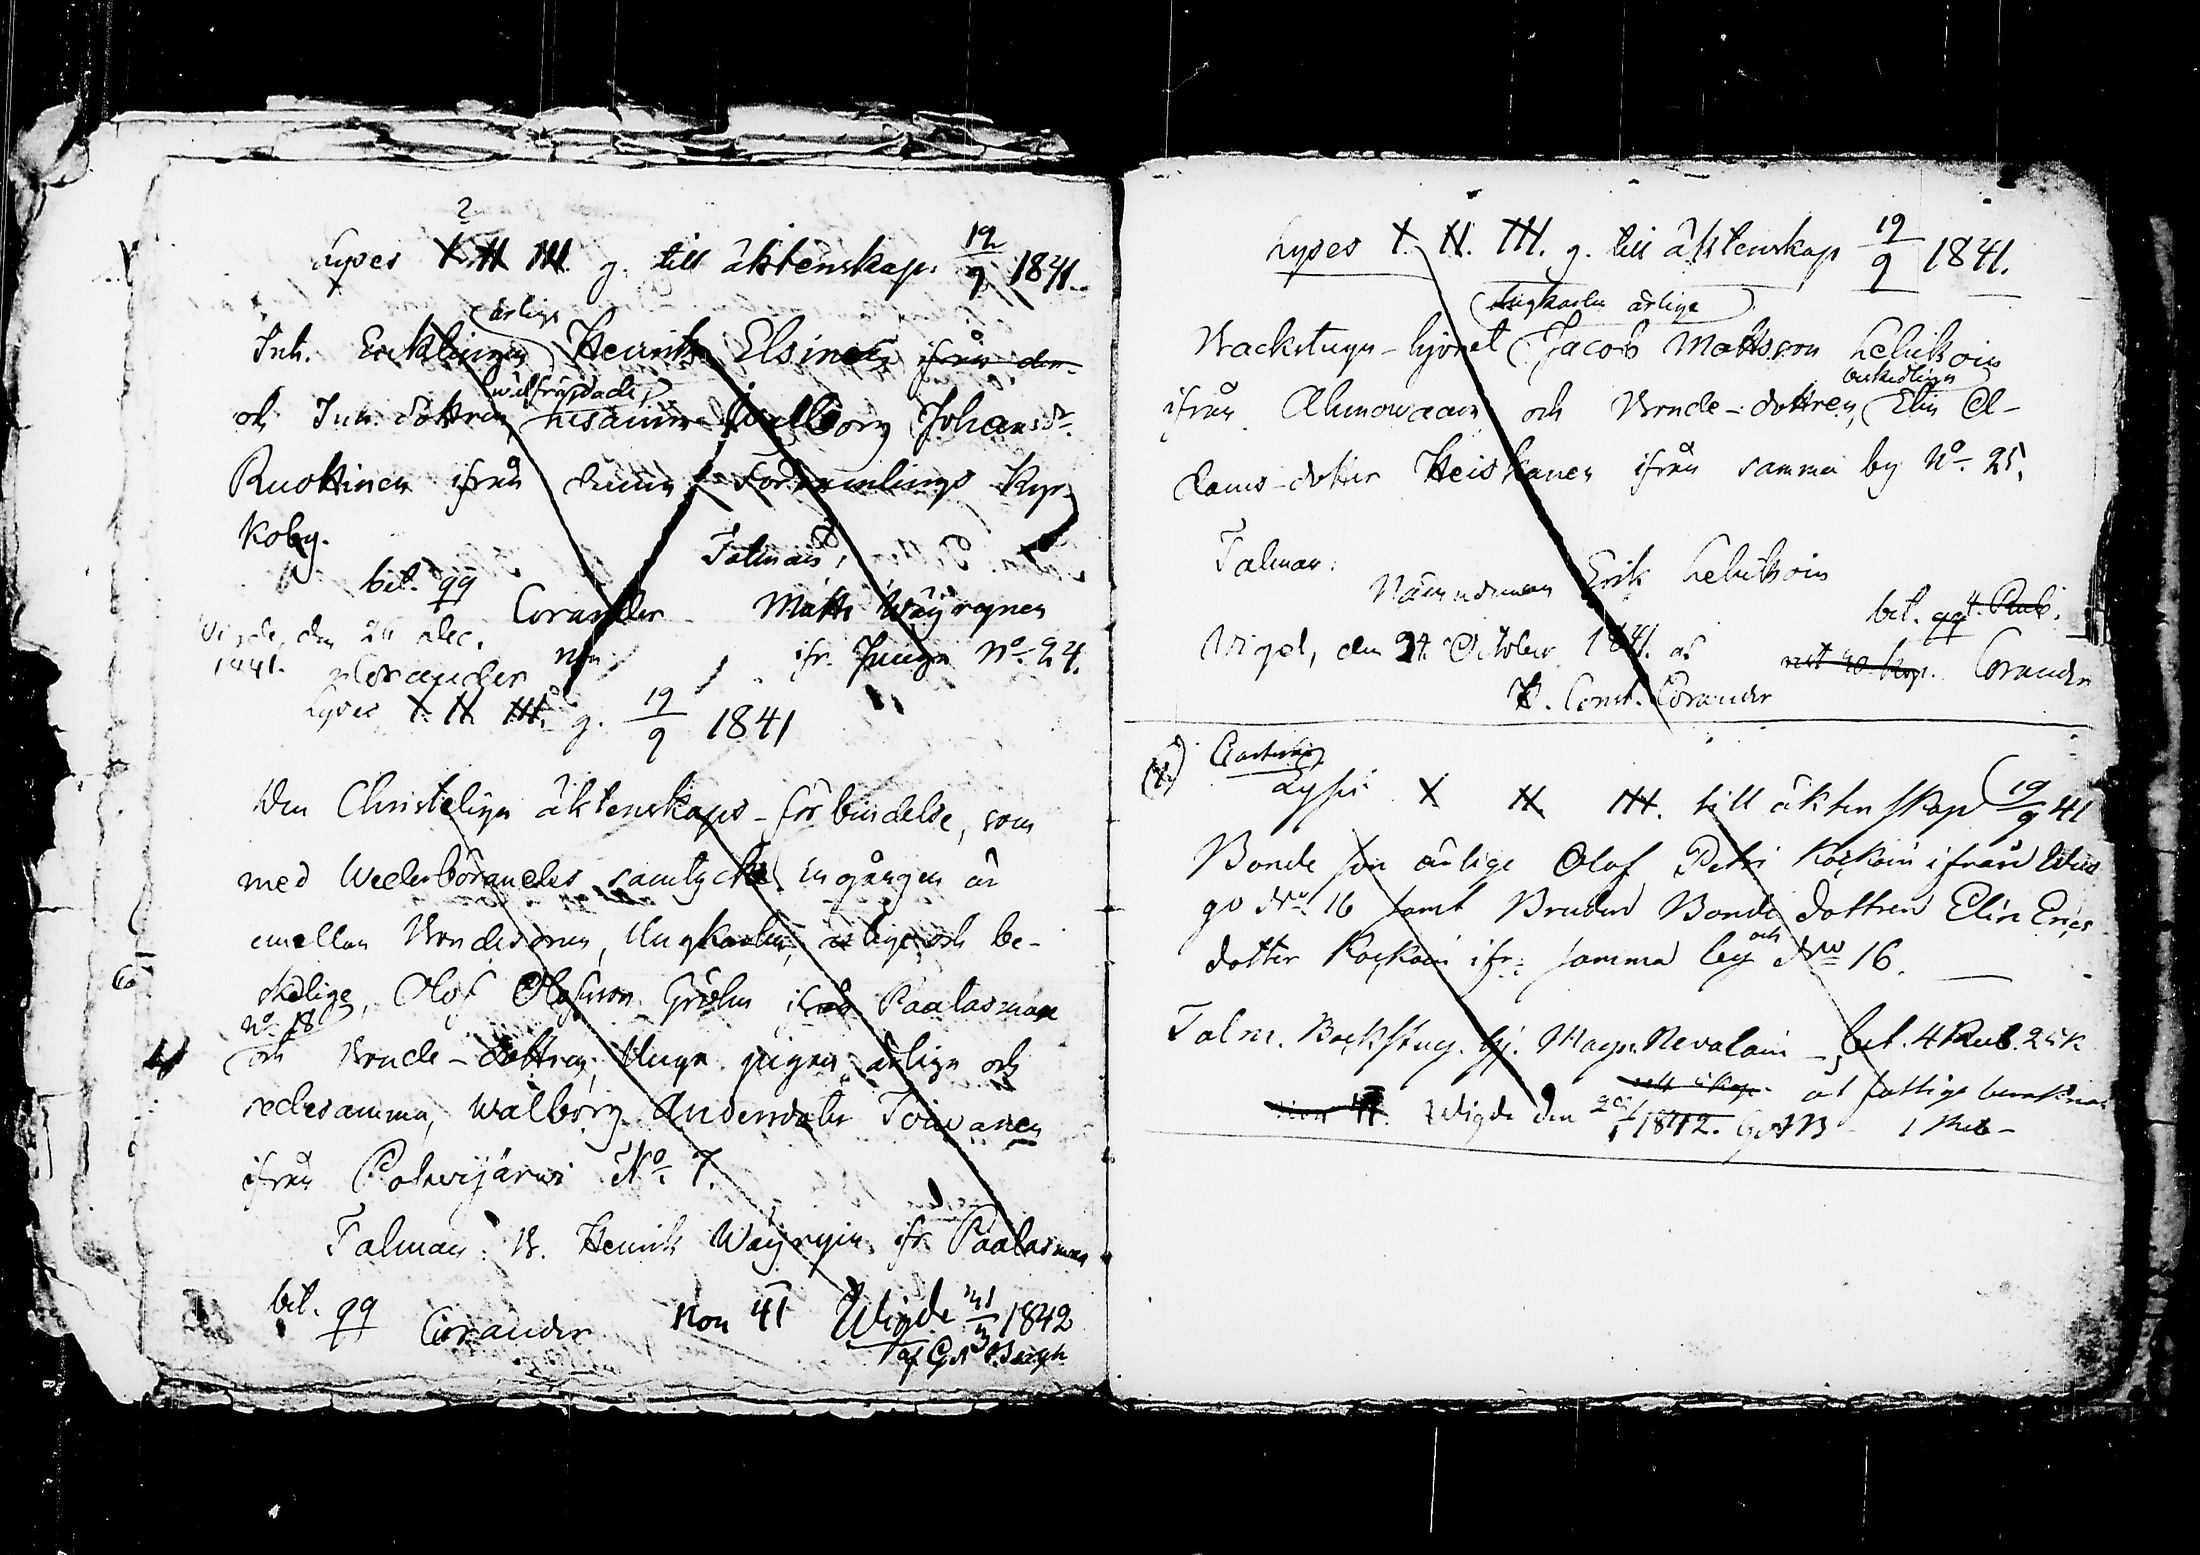 Lyses I. II. III. g. till äktenskap. 19/9 1841.
Inh. Enklingen ärlige Henrik Elsinen ifrån den
och Inh. dottren välfrejdade Walborg Johansdr.
Ruottinen ifrån denna Församlings Kyr-
koby.
Talman,
bet. qq Corander
Matts Wäyrynen
ifr. Juuga No. 24.
Vigde, den 26 Dec.
1841. Corander
Lyses I. II. III. g. 19/9 1841
Den Christeliga äktenskaps-förbindelse, som
med Wederbörandes samtycke ingången är
emellan Bondesonen, Ungkarlen, ärlige och be-
skedlige, Olof Olofsson Gröhn ifrån Paalasmaa
No. 18
och Bonde-dottren, Unga pigan, ärliga och
sedesamma, Walborg Andersdoter Toivanen
ifrån Polvijärvi No. 7.
Talman: B. Henrik Wäyrynen ifr. Paalasmaa
bet. qq Corander Non 41 Wigde 1842
af G. A. Bergh
Lyses I. II. III. g. till äktenskap 19/9 1841.
Backstugu-hjonet (Ungkarlen ärlige) Jacob Mattsson Lehikoin
ifrån Ahmowaara och Bonde-dottren, beskedliga Elin A-
dams-dotter Heiskanen ifrån samma by No. 25.
Talman:
Nämndeman Erik Lehikoin
bet. qq Rub.
Vigd, den 24 October 1841. af
Corander
H. Const. Corander
Lyses I II III. till äktenskap 19/9 41
Bonde son ärlige Olof Petri Koskoin ifrån
go No. 16 samt Bruden Bonde dottren Elin Erics
dotter Koskoin ifr: samma by och No 16.
Talm. Backstug. hj. Magn. Nevalain - bet. 4 Rub. 25 K
Wigde den 1842. G A B
at fattige 1 Rub -